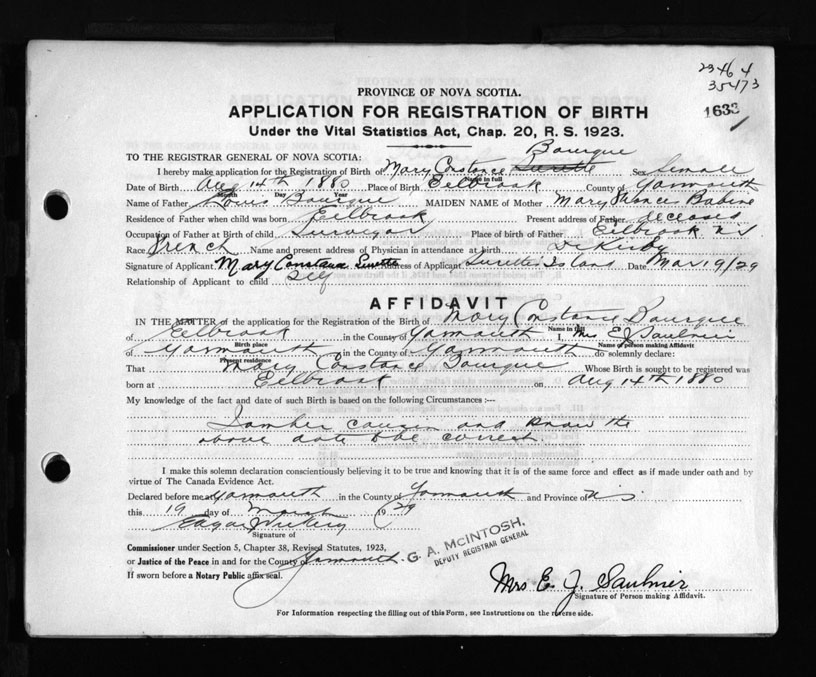 23464
35473
1633
PROVINCE OF NOVA SCOTIA.
APPLICATION FOR REGISTRATION OF BIRTH
Under the Vital Statistics Act, Chap. 20, R. S. 1923.
Bourque
TO THE REGISTRAR GENERAL OF NOVA SCOTIA:
I hereby make application for the Registration of Birth of Mary Constance Surette Sex female
Name in full
Date of Birth Aug 14th 1880 Place of Birth Eelbrook County of Yarmouth
Day Year
Name of Father Louis Bourque MAIDEN NAME of Mother Mary Frances Babine
Residence of Father when child was born Eelbrook Present address of Father deceased
Occupation of Father at Birth of child Surveyor Place of birth of Father Eelbrook N.S
Race French Name and present address of Physician in attendance at birth Dr Kirby
Signature of Applicant Mary Constance Surette Address of Applicant Surette's Island Date Mar 19/29
Relationship of Applicant to child Self
AFFIDAVIT
IN THE MATTER of the application for the Registration of the Birth of Mary Constance Bourque
Name in full
of Eelbrook in the County of Yarmouth I, Mrs E J Saulnier
Birth place Name of person making Affidavit
of Yarmouth in the County of Yarmouth do solemnly declare:
Present residence
That Mary Constance Bourque Whose Birth is sought to be registered was
born at Eelbrook on Aug 14th 1880
My knowledge of the fact and date of such Birth is based on the following Circumstances :—
I am her cousin and know the
above date to be correct.
I make this solemn declaration conscientiously believing it to be true and knowing that it is of the same force and effect as if made under oath and by
virtue of The Canada Evidence Act.
Declared before me at Yarmouth in the County of Yarmouth and Province of N.S.
this 19 day of March 1929
Edgar
Signature of
Commissioner under Section 5, Chapter 38, Revised Statutes, 1923,
or Justice of the Peace in and for the County of Yarmouth.
If sworn before a Notary Public affix seal.
G. A. McINTOSH,
DEPUTY REGISTRAR GENERAL
Mrs E. J. Saulnier
Signature of Person making Affidavit.
For Information respecting the filling out of this Form, see Instructions on the reverse side.